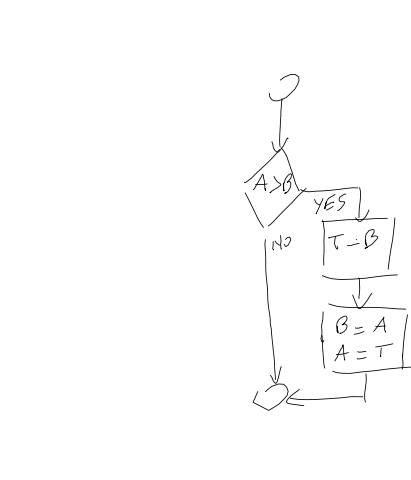 A>B
YES
NO
T=B
B=A
A=T